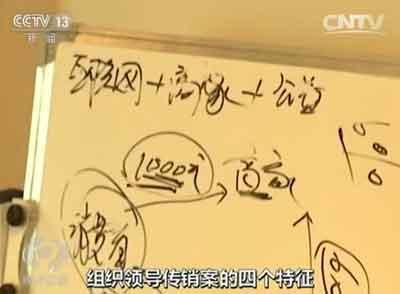 CCTV 13
新闻
CNTV
互联网+商家+公益
商家
消费者
组织领导传销案的四个特征